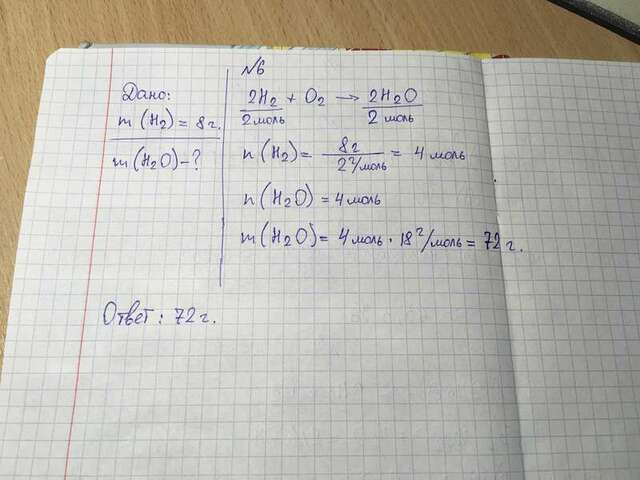 №6
Дано:
m (H₂) = 8 г.
m (H₂O) - ?
2H₂ + O₂ → 2H₂O
2 моль 2 моль
n (H₂) = 8 г / 2 г/моль = 4 моль
n (H₂O) = 4 моль
m (H₂O) = 4 моль · 18 г/моль = 72 г.
Ответ: 72 г.